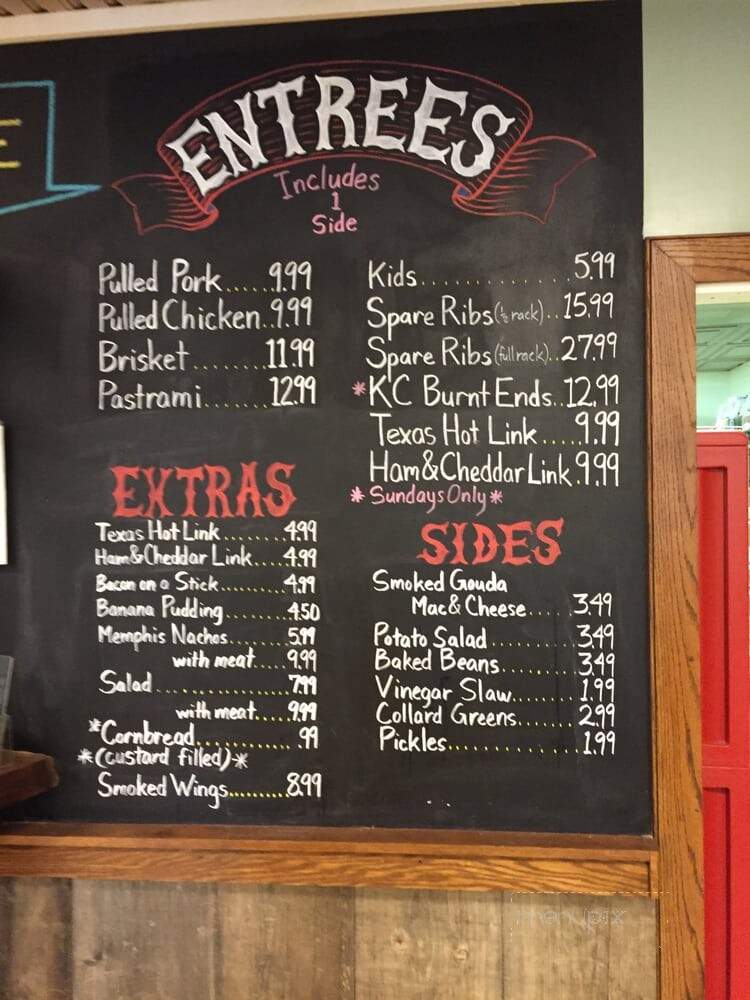 E
ENTREES
Includes
1
Side
Pulled Pork.....9.99
Pulled Chicken..9.99
Brisket........11.99
Pastrami.......12.99
Kids............5.99
Spare Ribs (½ rack)..15.99
Spare Ribs (full rack)..27.99
*KC Burnt Ends..12.99
Texas Hot Link....9.99
Ham & Cheddar Link.9.99
*Sundays Only*
EXTRAS
Texas Hot Link........4.99
Ham & Cheddar Link....4.99
Bacon on a Stick........4.99
Banana Pudding........4.50
Memphis Nachos.......5.99
with meat....9.99
Salad................7.99
with meat.....9.99
*Cornbread............99
*(custard filled)*
Smoked Wings.........8.99
SIDES
Smoked Gouda
Mac & Cheese.....3.49
Potato Salad.........3.49
Baked Beans........3.49
Vinegar Slaw.......1.99
Collard Greens......2.99
Pickles.............1.99
menupix